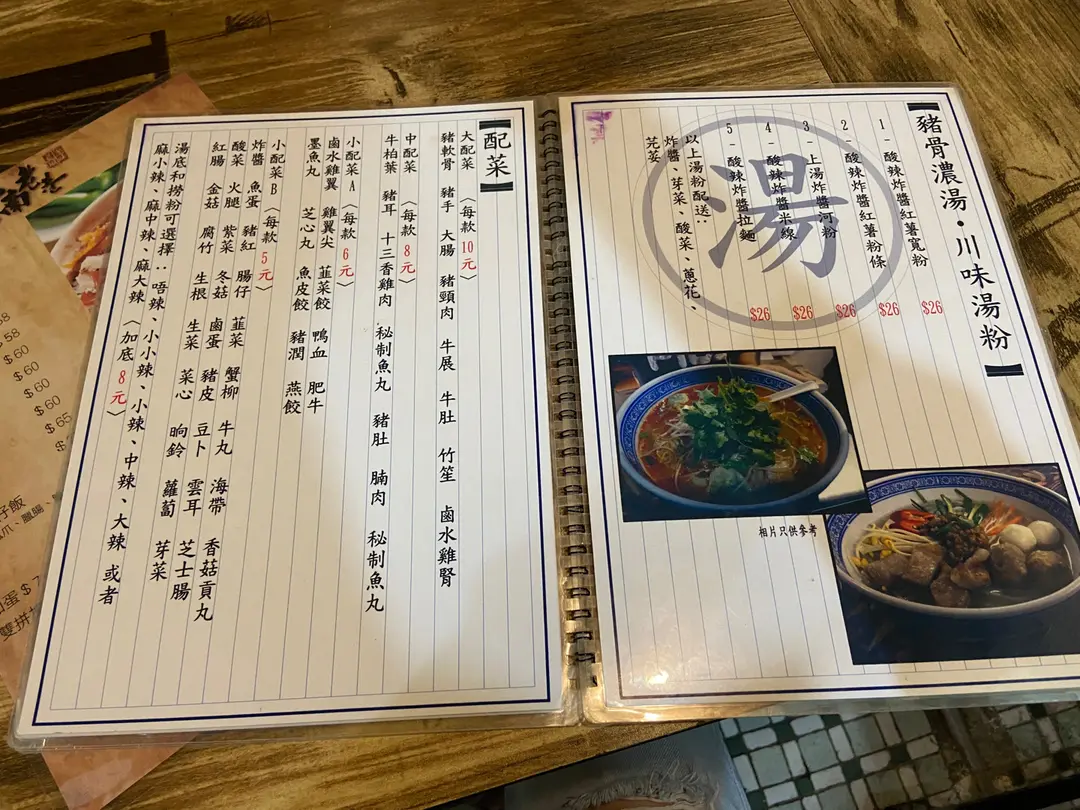 豬骨濃湯·川味湯粉
湯
1- 酸辣炸醬紅薯寬粉 $26
2- 酸辣炸醬紅薯粉條 $26
3- 上湯炸醬河粉 $26
4- 酸辣炸醬米線 $26
5- 酸辣炸醬拉麵 $26
以上湯粉配送:
炸醬、芽菜、酸菜、蔥花、
芫荽
相片只供參考
【配菜】
大配菜〈每款10元〉
豬軟骨 豬手 大腸 豬頸肉 牛展 牛肚 竹笙 鹵水雞腎
中配菜〈每款8元〉
牛柏葉 豬耳 十三香雞肉 秘制魚丸 豬肚 腩肉 秘制魚丸
小配菜A〈每款6元〉
鹵水雞翼 雞翼尖 韮菜餃 鴨血 肥牛
墨魚丸 芝心丸 魚皮餃 豬潤 燕餃
小配菜B〈每款5元〉
炸醬 魚蛋 豬紅 腸仔 韮菜 蟹柳 牛丸 海帶 香菇貢丸
酸菜 火腿 紫菜 冬菇 鹵蛋 豬皮 豆卜 雲耳 芝士腸
紅腸 金菇 腐竹 生根 生菜 菜心 响鈴 蘿蔔 芽菜
湯底和撈粉可選擇:唔辣、小小辣、小辣、中辣、大辣 或者
麻小辣、麻中辣、麻大辣〈加底8元〉
58
$58
$60
$60
$60
$60
$65
仔飯
雙拼